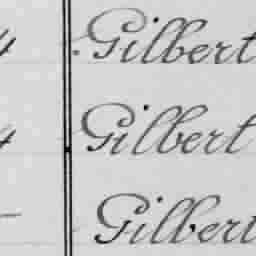 Gilbert
4 Gilbert
Gilbert